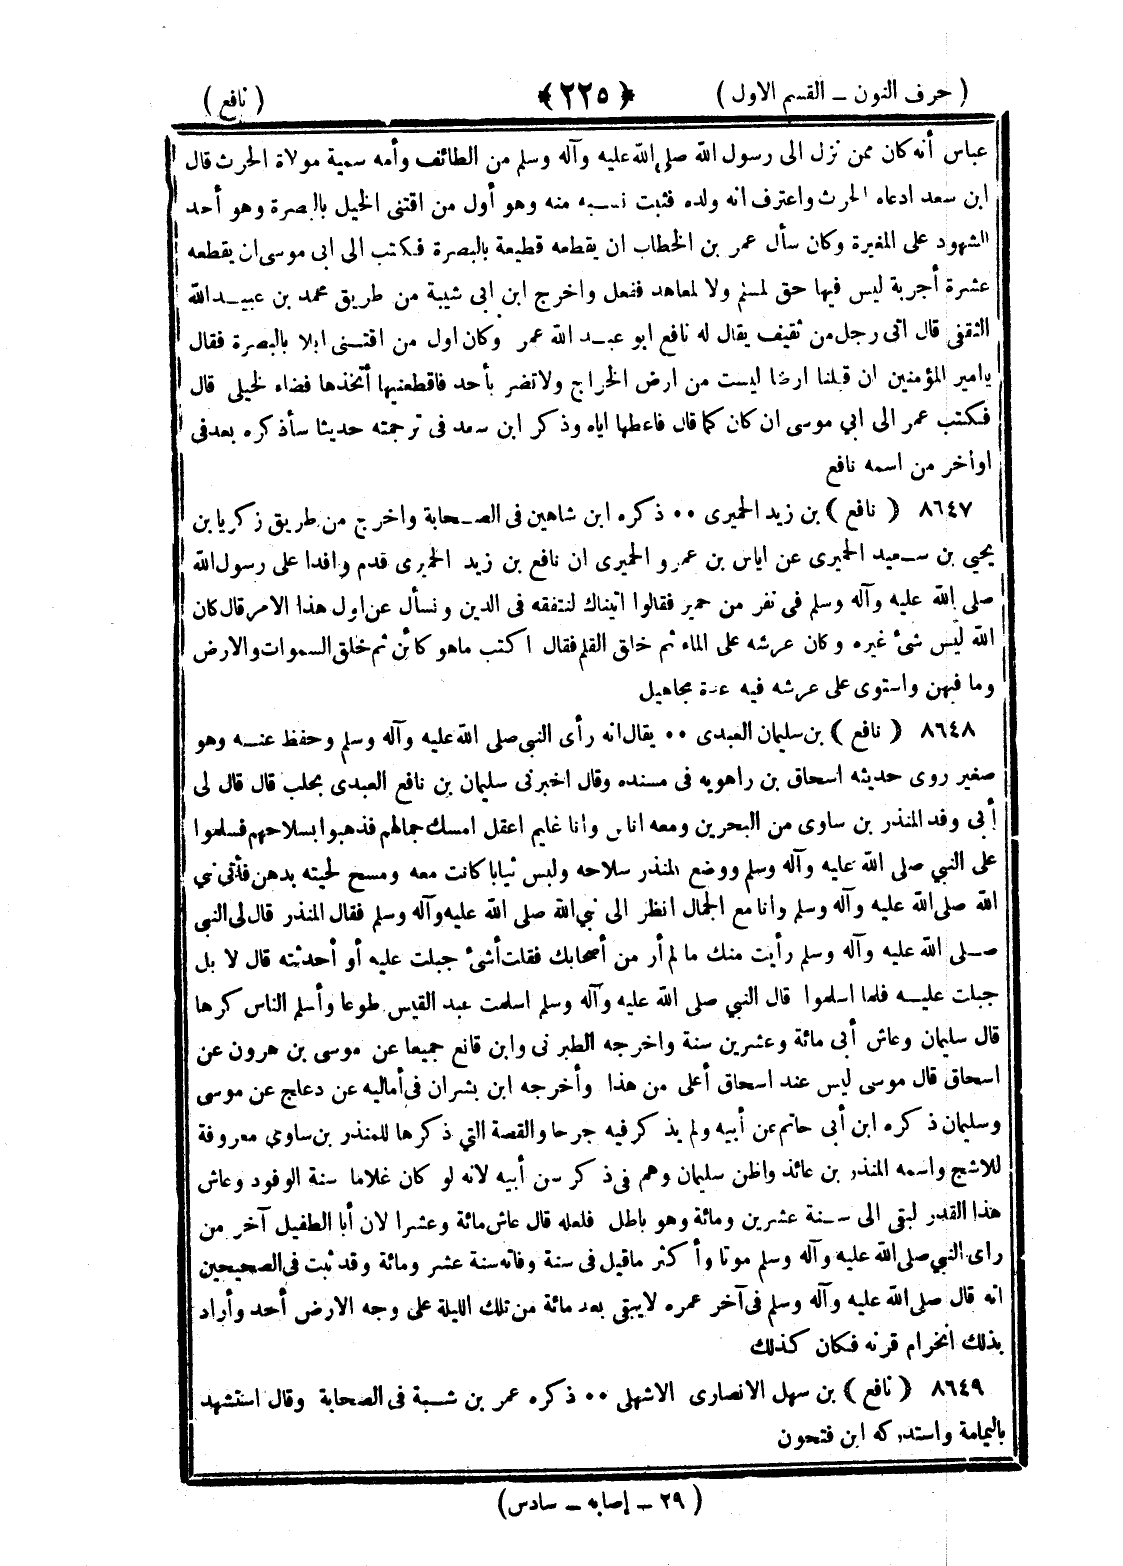 ( حرف النون ــ القسم الاول ) ﴿ ٢٢٥ ﴾ ( نافع )
عباس أنه كان ممن نزل الى رسول الله صلى الله عليه وآله وسلم من الطائف وأمه سمية مولاة الحرث قال
ابن سعد ادعاه الحرث واعترف انه ولده فثبت نسبه منه وهو أول من اقتنى الخيل بالبصرة وهو أحد
الشهود على المغيرة وكان سأل عمر بن الخطاب ان يقطعه قطيعة بالبصرة فكتب الى ابى موسى ان يقطعه
عشرة أجربة ليس فيها حق لمسلم ولا لمعاهد ففعل واخرج ابن ابى شيبة من طريق محمد بن عبيد الله
الثقفى قال اتى رجل من ثقيف يقال له نافع ابو عبد الله عمر وكان اول من اقتنى ابلا بالبصرة فقال
يامير المؤمنين ان قبلنا ارضا ليست من ارض الخراج ولا تضر بأحد فاقطعنيها أتخذها فضاء لخيلى قال
فكتب عمر الى ابي موسى ان كان كما قال فاعطها اياه وذكر ابن سعد فى ترجمته حديثا سأذكره بعد فى
اواخر من اسمه نافع
٨٦٤٧ ( نافع ) بن زيد الحميرى ٠٠ ذكره ابن شاهين فى الصحابة واخرج من طريق زكريا بن
يحيى بن سعيد الحميرى عن اياس بن عمرو الحميرى ان نافع بن زيد الحميرى قدم وافدا على رسول الله
صلى الله عليه وآله وسلم فى نفر من حمير فقالوا اتيناك لنتفقه فى الدين ونسأل عن اول هذا الامر قال كان
الله ليس شئ غيره وكان عرشه على الماء ثم خلق القلم فقال اكتب ماهو كائن ثم خلق السموات والارض
وما فيهن واستوى على عرشه فيه عدة مجاهيل
٨٦٤٨ ( نافع ) بن سليمان العبدى ٠٠ يقال انه رأى النبى صلى الله عليه وآله وسلم وحفظ عنه وهو
صغير روى حديثه اسحاق بن راهويه فى مسنده وقال اخبرنى سليمان بن نافع العبدى بحلب قال قال لى
أبى وفد المنذر بن ساوى من البحرين ومعه اناس وانا غليم اعقل امسك جمالهم فذهبوا بسلاحهم فسلموا
على النبي صلى الله عليه وآله وسلم ووضع المنذر سلاحه ولبس ثيابا كانت معه ومسح لحيته بدهن فأتى نبي
الله صلى الله عليه وآله وسلم وانا مع الجمال انظر الى نبي الله صلى الله عليه وآله وسلم فقال المنذر قال لى النبى
صلى الله عليه وآله وسلم رأيت منك ما لم أر من أصحابك فقلت أشئ جبلت عليه أو أحدثته قال لا بل
جبلت عليه فلما اسلموا قال النبي صلى الله عليه وآله وسلم اسلمت عبد القيس طوعا وأسلم الناس كرها
قال سليمان وعاش أبى مائة وعشرين سنة واخرجه الطبرنى وابن قانع جميعا عن موسى بن هرون عن
اسحاق قال موسى ليس عند اسحاق أعلى من هذا وأخرجه ابن بشران فى أماليه عن دعلج عن موسى
وسليمان ذكره ابن أبى حاتم عن أبيه ولم يذكر فيه جرحا والقصة التي ذكرها للمنذر بن ساوى معروفة
للاشج واسمه المنذر بن عائذ واظن سليمان وهم فى ذكر سن أبيه لانه لو كان غلاما سنة الوفود وعاش
هذا القدر لبقى الى سنة عشرين ومائة وهو باطل فلعله قال عاش مائة وعشرا لان أبا الطفيل آخر من
رأى النبي صلى الله عليه وآله وسلم موتا وأكثر ماقيل فى سنة وفاته سنة عشر ومائة وقد ثبت فى الصحيحين
انه قال صلى الله عليه وآله وسلم فى آخر عمره لا يبقى بعد مائة من تلك الليلة على وجه الارض أحد وأراد
بذلك انخرام قرنه فكان كذلك
٨٦٤٩ ( نافع ) بن سهل الانصارى الاشهلى ٠٠ ذكره عمر بن شبة فى الصحابة وقال استشهد
باليمامة واستدركه ابن فتحون
( ٢٩ ــ إصابه ــ سادس )